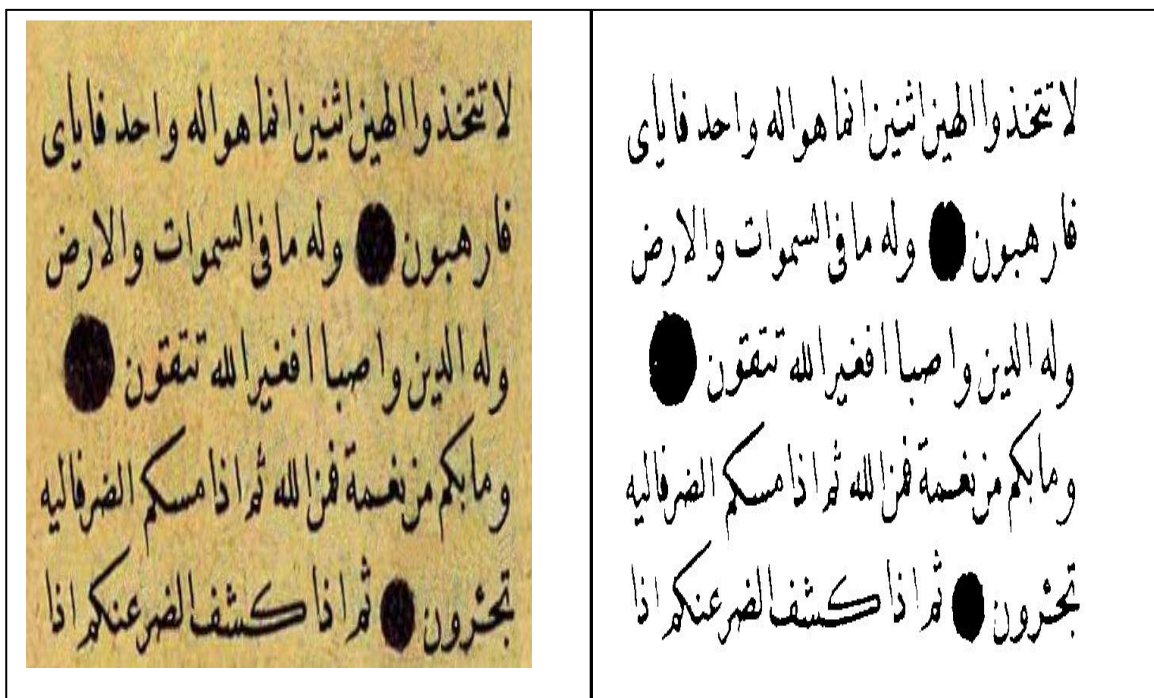 لا تتخذوا الهين اثنين انما هو اله واحد فاياى
فارهبون ● وله ما فى السموات والارض
وله الدين واصبا افغير الله تتقون ●
وما بكم من نعمة فمن الله ثم اذا مسكم الضر فاليه
تجئرون ● ثم اذا كشف الضر عنكم اذا
لا تتخذوا الهين اثنين انما هو اله واحد فاياى
فارهبون ● وله ما فى السموات والارض
وله الدين واصبا افغير الله تتقون ●
وما بكم من نعمة فمن الله ثم اذا مسكم الضر فاليه
تجئرون ● ثم اذا كشف الضر عنكم اذا